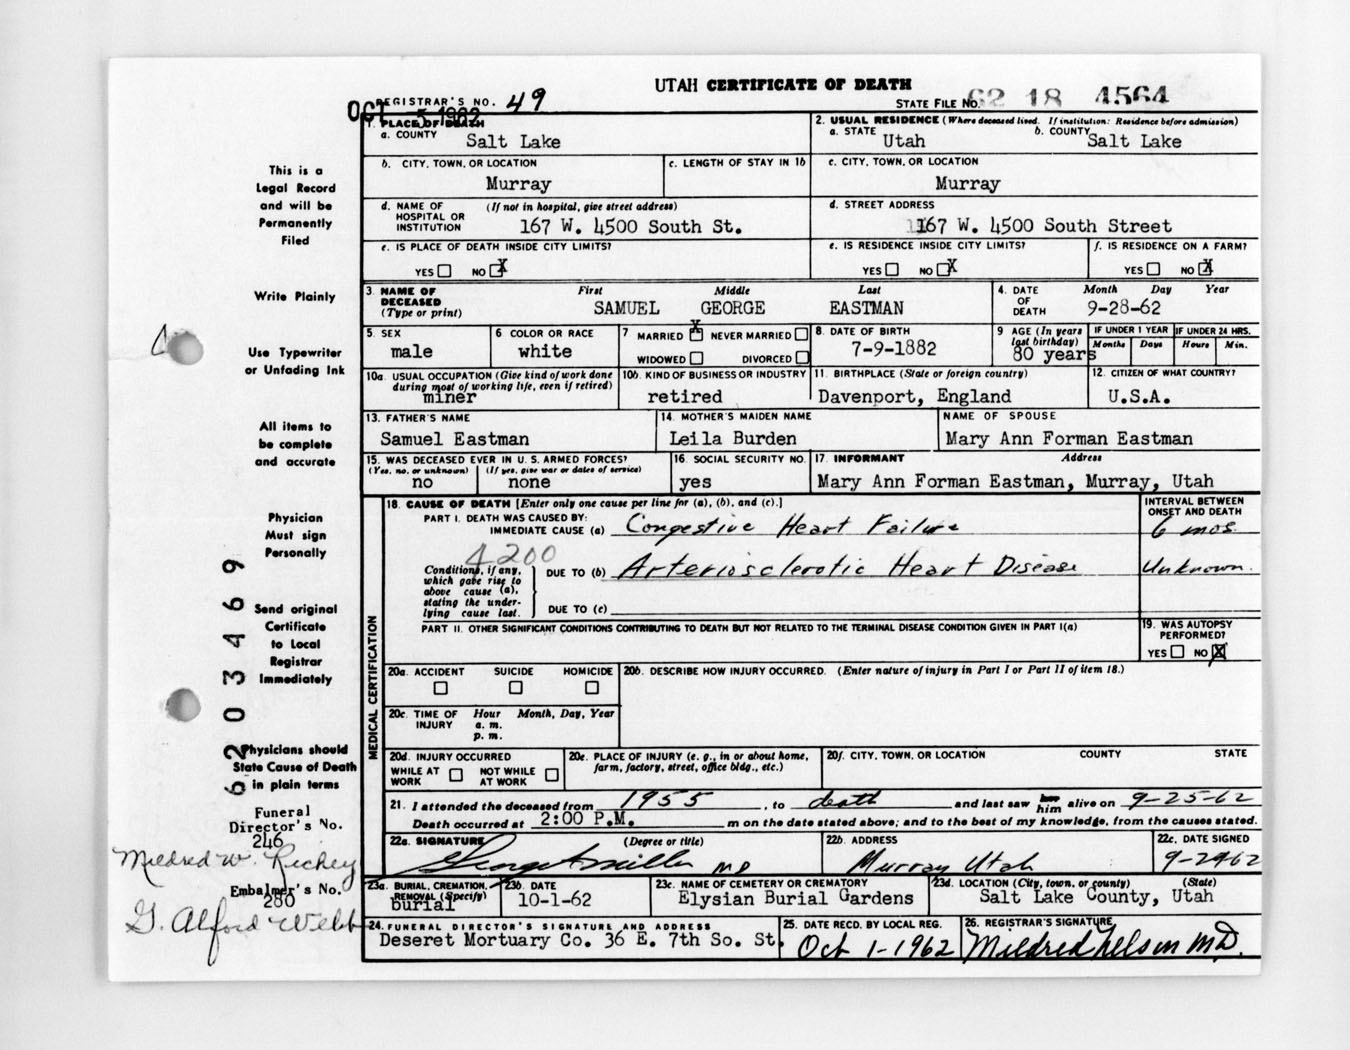 UTAH CERTIFICATE OF DEATH
REGISTRAR'S NO. 49
STATE FILE NO. 62 18 4564
OCT 5 1962
1. PLACE OF DEATH
a. COUNTY
Salt Lake
2. USUAL RESIDENCE (Where deceased lived. If institution: Residence before admission)
a. STATE b. COUNTY
Utah Salt Lake
b. CITY, TOWN, OR LOCATION
Murray
c. LENGTH OF STAY IN 1b
c. CITY, TOWN, OR LOCATION
Murray
d. NAME OF HOSPITAL OR INSTITUTION (If not in hospital, give street address)
167 W. 4500 South St.
d. STREET ADDRESS
167 W. 4500 South Street
e. IS PLACE OF DEATH INSIDE CITY LIMITS?
YES NO X
e. IS RESIDENCE INSIDE CITY LIMITS?
YES NO X
f. IS RESIDENCE ON A FARM?
YES NO X
3. NAME OF DECEASED (Type or print)
First Middle Last
SAMUEL GEORGE EASTMAN
4. DATE OF DEATH
Month Day Year
9-28-62
5. SEX
male
6 COLOR OR RACE
white
7 MARRIED X NEVER MARRIED
WIDOWED DIVORCED
8. DATE OF BIRTH
7-9-1882
9 AGE (In years last birthday)
80 years
IF UNDER 1 YEAR
Months Days
IF UNDER 24 HRS.
Hours Min.
10a. USUAL OCCUPATION (Give kind of work done during most of working life, even if retired)
miner
10b. KIND OF BUSINESS OR INDUSTRY
retired
11. BIRTHPLACE (State or foreign country)
Davenport, England
12. CITIZEN OF WHAT COUNTRY?
U.S.A.
13. FATHER'S NAME
Samuel Eastman
14. MOTHER'S MAIDEN NAME
Leila Burden
NAME OF SPOUSE
Mary Ann Forman Eastman
15. WAS DECEASED EVER IN U. S. ARMED FORCES?
(Yes, no, or unknown) (If yes, give war or dates of service)
no none
16. SOCIAL SECURITY NO.
yes
17. INFORMANT Address
Mary Ann Forman Eastman, Murray, Utah
MEDICAL CERTIFICATION
18. CAUSE OF DEATH [Enter only one cause per line for (a), (b), and (c).]
INTERVAL BETWEEN ONSET AND DEATH
PART I. DEATH WAS CAUSED BY:
IMMEDIATE CAUSE (a) Congestive Heart Failure 6 mos.
4200
Conditions, if any, which gave rise to above cause (a), stating the underlying cause last.
DUE TO (b) Arteriosclerotic Heart Disease Unknown.
DUE TO (c)
PART II. OTHER SIGNIFICANT CONDITIONS CONTRIBUTING TO DEATH BUT NOT RELATED TO THE TERMINAL DISEASE CONDITION GIVEN IN PART I(a)
19. WAS AUTOPSY PERFORMED?
YES NO X
20a. ACCIDENT SUICIDE HOMICIDE
20b. DESCRIBE HOW INJURY OCCURRED. (Enter nature of injury in Part I or Part II of item 18.)
20c. TIME OF INJURY Hour Month, Day, Year
a. m.
p. m.
20d. INJURY OCCURRED
WHILE AT WORK NOT WHILE AT WORK
20e. PLACE OF INJURY (e. g., in or about home, farm, factory, street, office bldg., etc.)
20f. CITY, TOWN, OR LOCATION COUNTY STATE
21. I attended the deceased from 1955, to death and last saw him alive on 9-25-62
Death occurred at 2:00 P.M. m on the date stated above; and to the best of my knowledge, from the causes stated.
22a. SIGNATURE (Degree or title)
George A Miller MD
22b. ADDRESS
Murray Utah
22c. DATE SIGNED
9-29-62
23a. BURIAL, CREMATION, REMOVAL (Specify)
burial
23b. DATE
10-1-62
23c. NAME OF CEMETERY OR CREMATORY
Elysian Burial Gardens
23d. LOCATION (City, town, or county) (State)
Salt Lake County, Utah
24. FUNERAL DIRECTOR'S SIGNATURE AND ADDRESS
Deseret Mortuary Co. 36 E. 7th So. St.
25. DATE RECD. BY LOCAL REG.
Oct 1-1962
26. REGISTRAR'S SIGNATURE
Mildred Nelson M.D.
This is a
Legal Record
and will be
Permanently
Filed
Write Plainly
Use Typewriter
or Unfading Ink
All items to
be complete
and accurate
Physician
Must sign
Personally
Send original
Certificate
to Local
Registrar
Immediately
Physicians should
State Cause of Death
in plain terms
6203469
Funeral
Director's No.
246
Mildred W. Richey
Embalmer's No.
280
G. Alford Webb